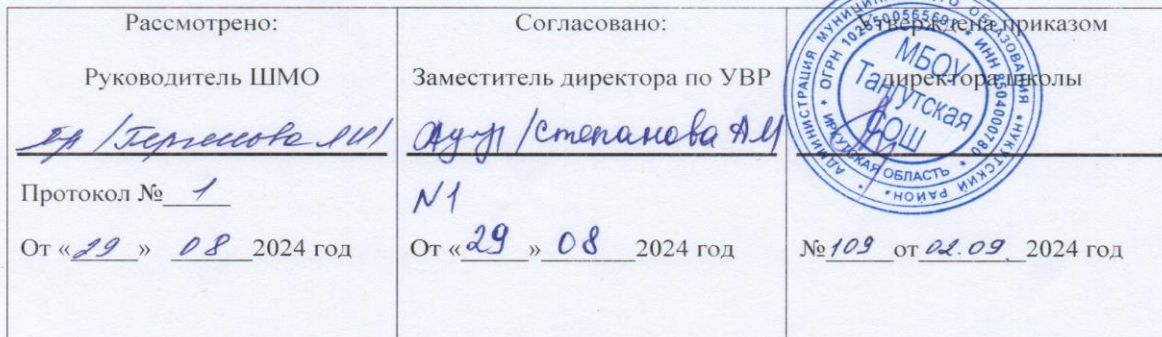 Рассмотрено:
Руководитель ШМО
Протокол № 1
От «29» 08 2024 год
Согласовано:
Заместитель директора по УВР
/Степанова АМ/
№1
От «29» 08 2024 год
Утверждена приказом
директора школы
№109 от 02.09. 2024 год
АДМИНИСТРАЦИЯ МУНИЦИПАЛЬНОГО ОБРАЗОВАНИЯ «НУКУТСКИЙ РАЙОН»
ИРКУТСКАЯ ОБЛАСТЬ
МБОУ
Тангутская
СОШ